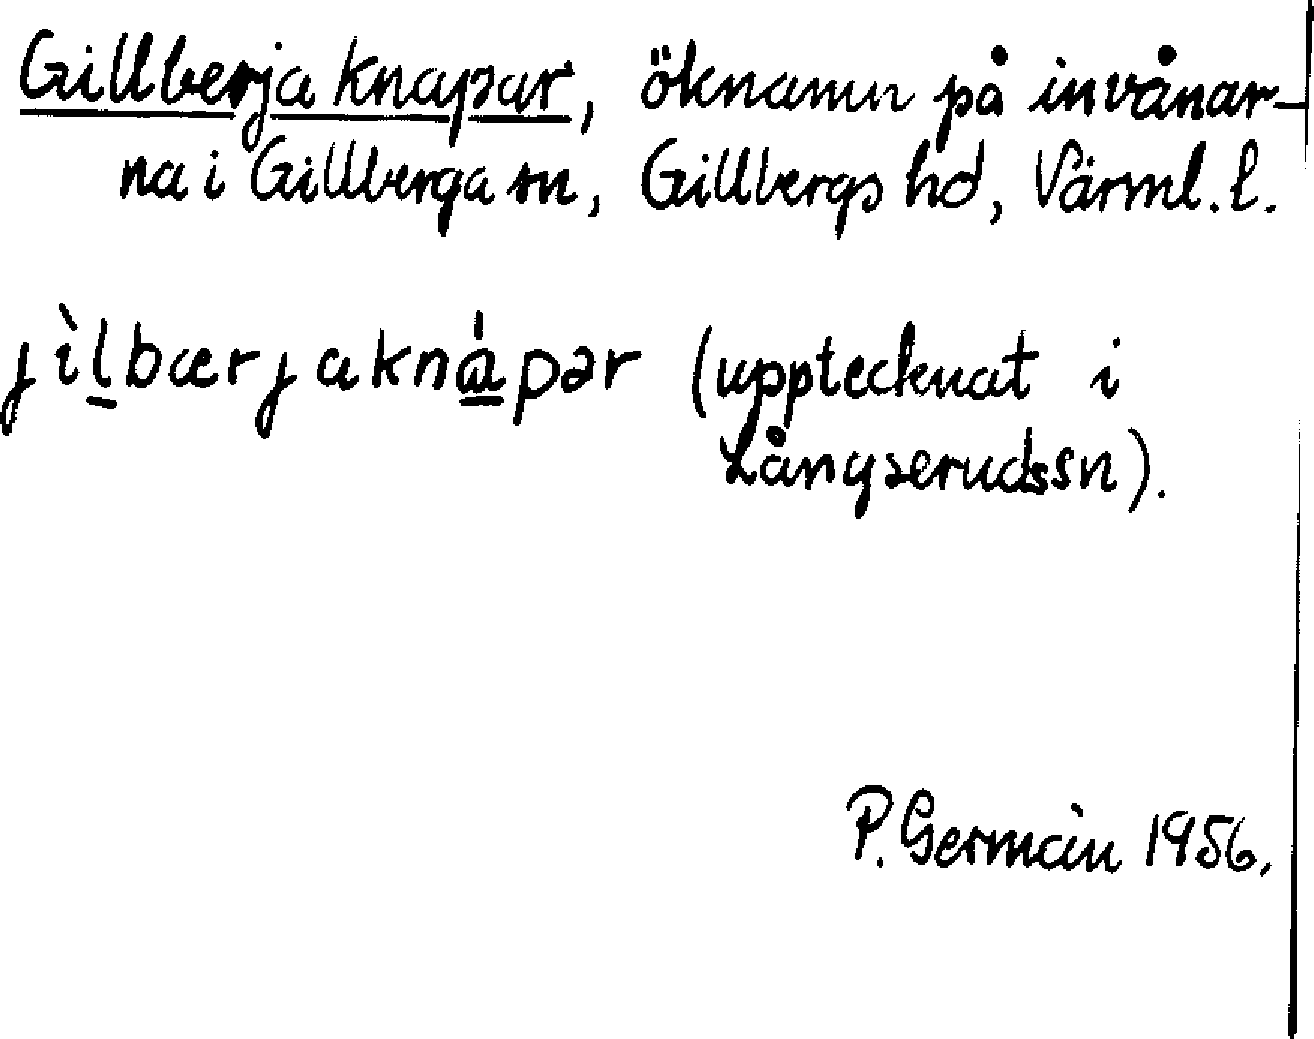 Gillberja knapar, öknamn på invånar-
na i Gillberga sn, Gillbergs hd, Värml. l.
jìl̠bærjakná̠pər (upptecknat i
Långserudssn).
P. Germain 1956.